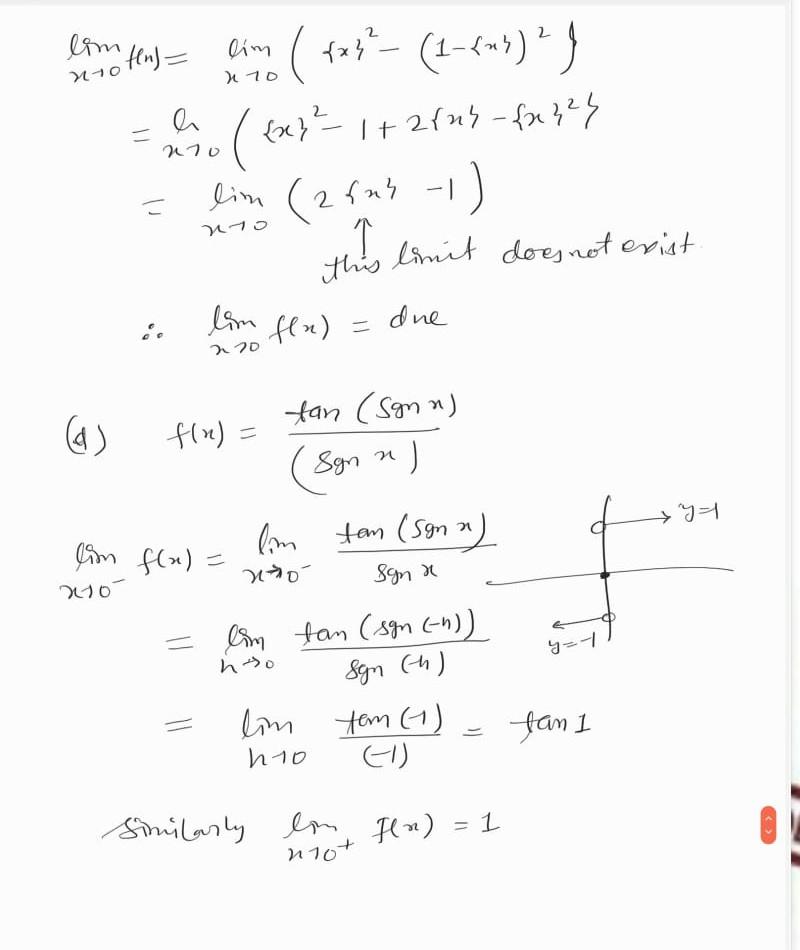 lim x→0 f(x) = lim x→0 ( {x}² − (1−{x})² }
= li x→0 ( {x}² − 1 + 2{x} − {x}²}
= lim x→0 (2{x} −1)
↑
this limit does not exist.
∴ lim x→0 f(x) = dne
(d) f(x) = tan (Sgn x) / (Sgn x)
lim x→0⁻ f(x) = lim x→0⁻ tan (Sgn x) / Sgn x
→ y=1
= lim h→0 tan (sgn (−h)) / Sgn (−h)
y=−1
= lim h→0 tan (−1) / (−1) = tan 1
Similarly lim x→0⁺ f(x) = 1